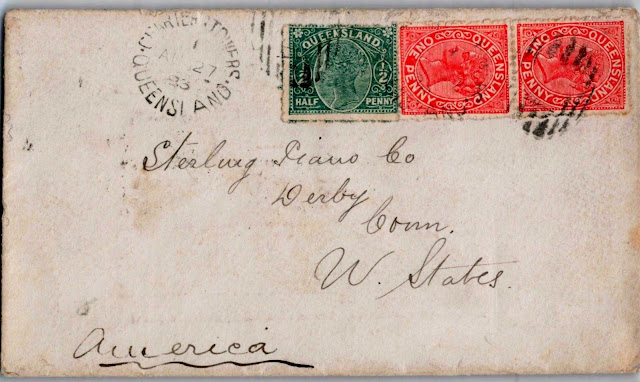 CHARTERS·TOWERS
1
AP 27
93
QUEENSLAND
QUEENSLAND
½ ½
HALF PENNY
QUEENSLAND
ONE PENNY
QUEENSLAND
ONE PENNY
Sterling Piano Co
Derby
Conn.
U. States.
America